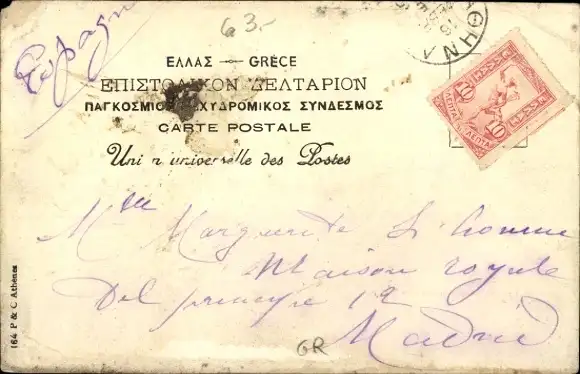 63.-
ΑΘΗΝΑ
ΕΛΛΑΣ — GRÈCE
ΕΠΙΣΤΟΛΙΚΟΝ ΔΕΛΤΑΡΙΟΝ
ΠΑΓΚΟΣΜΙΟΣ ΤΑΧΥΔΡΟΜΙΚΟΣ ΣΥΝΔΕΣΜΟΣ
CARTE POSTALE
Union universelle des Postes
ΕΛΛΑΣ
10 10
ΛΕΠΤΑ ΛΕΠΤΑ
Mlle Marguerite
Maison royale
Del principe 12
Madrid
GR
164 P & C Athènes